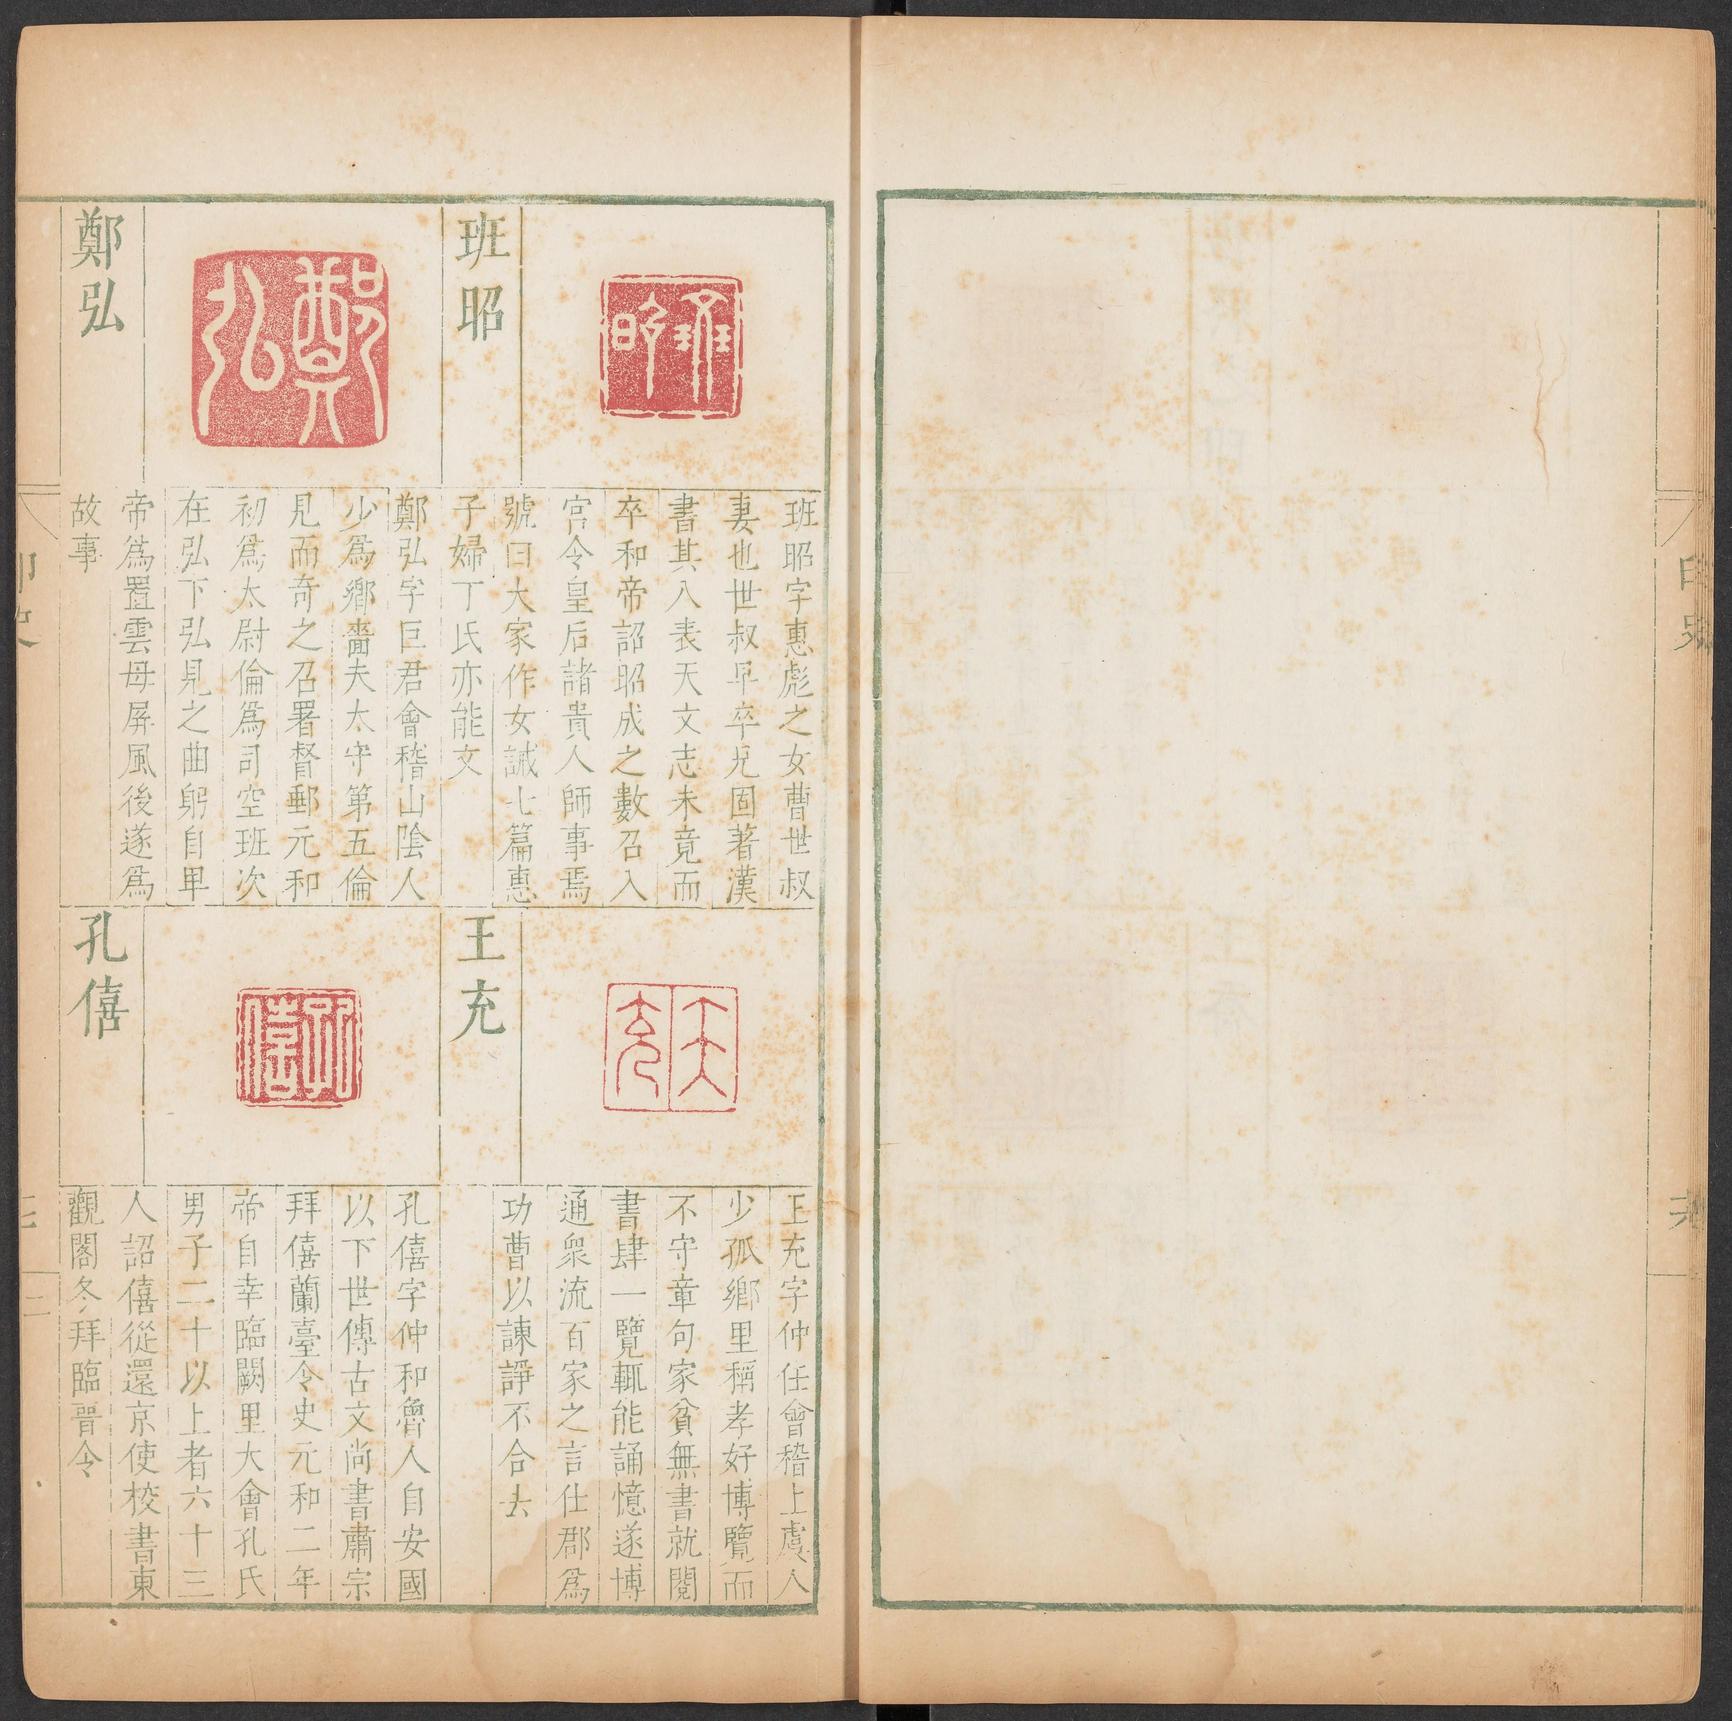 印史
班昭
班昭字惠彪之女曹世叔
妻也世叔早卒兄固著漢
書其八表天文志未竟而
卒和帝詔昭成之數召入
宮令皇后諸貴人師事焉
號曰大家作女誡七篇惠
子婦丁氏亦能文
鄭弘
鄭弘字巨君會稽山陰人
少為鄉嗇夫太守第五倫
見而奇之召署督郵元和
初為太尉倫為司空班次
在弘下弘見之曲躬自卑
帝為置雲母屏風後遂為
故事
王充
王充字仲任會稽上虞人
少孤鄉里稱孝好博覽而
不守章句家貧無書就閱
書肆一覽輒能誦憶遂博
通衆流百家之言仕郡為
功曹以諫諍不合去
孔僖
孔僖字仲和魯人自安國
以下世傳古文尚書肅宗
拜僖蘭臺令史元和二年
帝自幸臨闕里大會孔氏
男子二十以上者六十三
人詔僖從還京使校書東
觀閣冬拜臨晉令